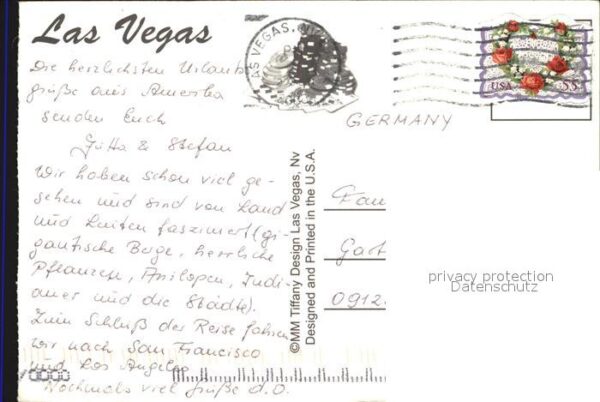 Las Vegas
LAS VEGAS, NV
USA 55
GERMANY
Die herzlichsten Urlaubs
grüße aus Amerika
senden Euch
Jutta & Stefan
Wir haben schon viel ge-
sehen und sind von Land
und Leuten fasziniert (gi-
gantische Berge, herrliche
Pflanzen, Antilopen, Indi-
aner und die Städte).
Zum Schluß der Reise fahren
wir nach San Francisco
und Los Angeles
Nochmals viel Grüße d.O.
©MM Tiffany Design Las Vegas, Nv
Designed and Printed in the U.S.A.
Fam
Gart
0912
privacy protection
Datenschutz